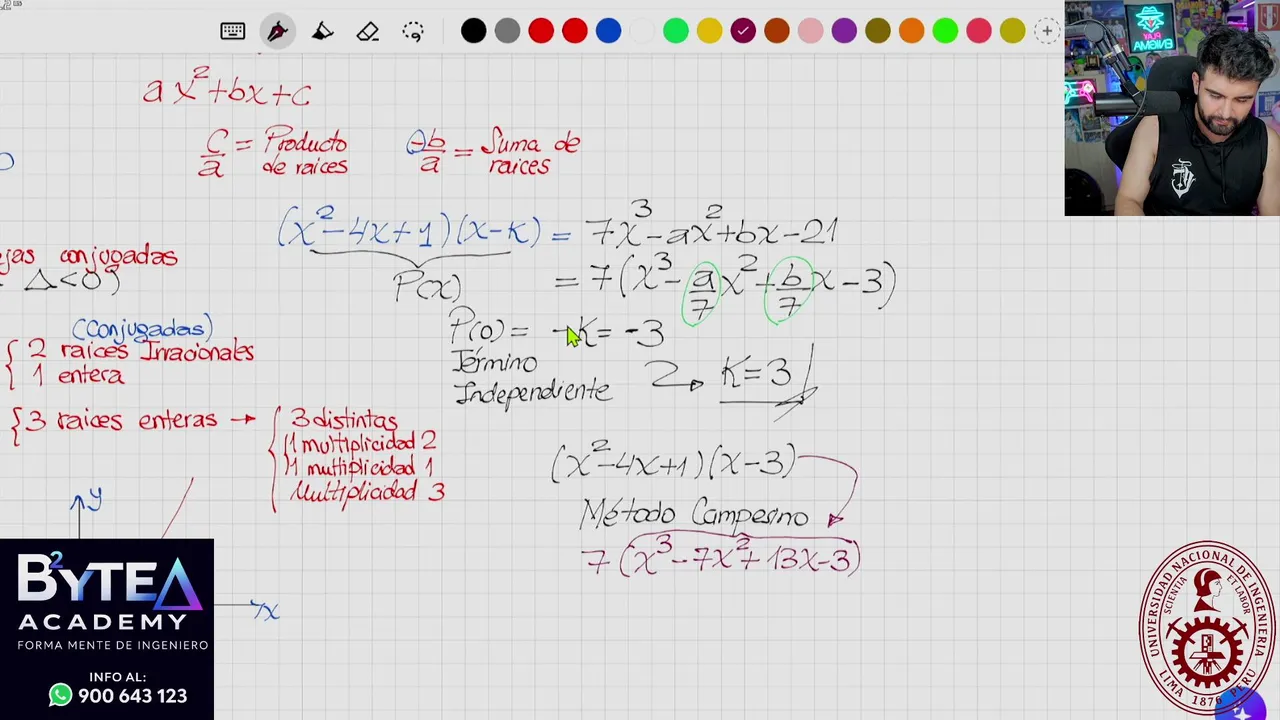 ax²+bx+c
c/a = Producto de raices
-b/a = Suma de raices
(x²-4x+1)(x-K) = 7x³-ax²+bx-21
P(x)
= 7(x³-a/7x²+b/7x-3)
jas conjugadas
Δ<0)
P(0)= -K=-3
Término
Independiente
K=3
(Conjugadas)
2 raices Irracionales
1 entera
3 raices enteras →
3 distintas
1 multiplicidad 2
1 multiplicidad 1
Multiplicidad 3
(x²-4x+1)(x-3)
Método Campesino
7(x³-7x²+13x-3)
y
x
B²YTE
ACADEMY
FORMA MENTE DE INGENIERO
INFO AL:
900 643 123
UNIVERSIDAD NACIONAL DE INGENIERIA
SCIENTIA
LIMA 1876 PERU
PLAY
ENIGMA